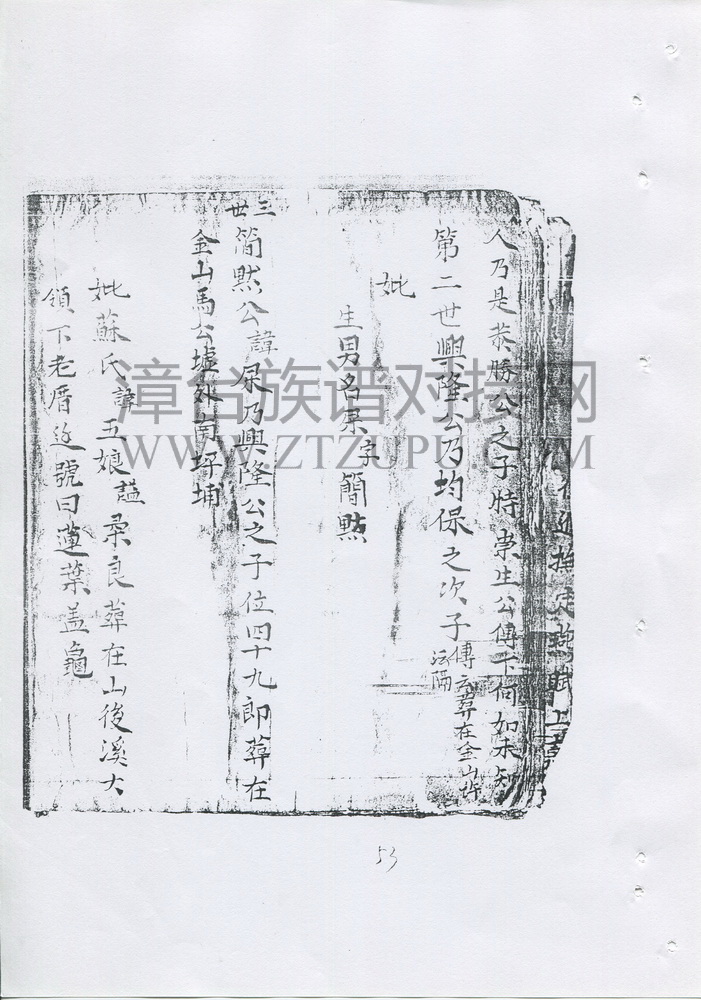 人乃是恭勝公之子時崇生公傳下何如未知
第二世興隆公乃均保之次子傳云葬在金山許
坛隔
妣
生男名杲字簡點
三世
簡點公諱杲乃興隆公之子位四十九郎葬在
金山馬公墟外南坪埔
妣蘇氏諱五娘謚柔良葬在山後溪大
領下老厝近號曰蓮葉盖龜
53
漳台族谱对接网
WWW.ZTZUPU.COM